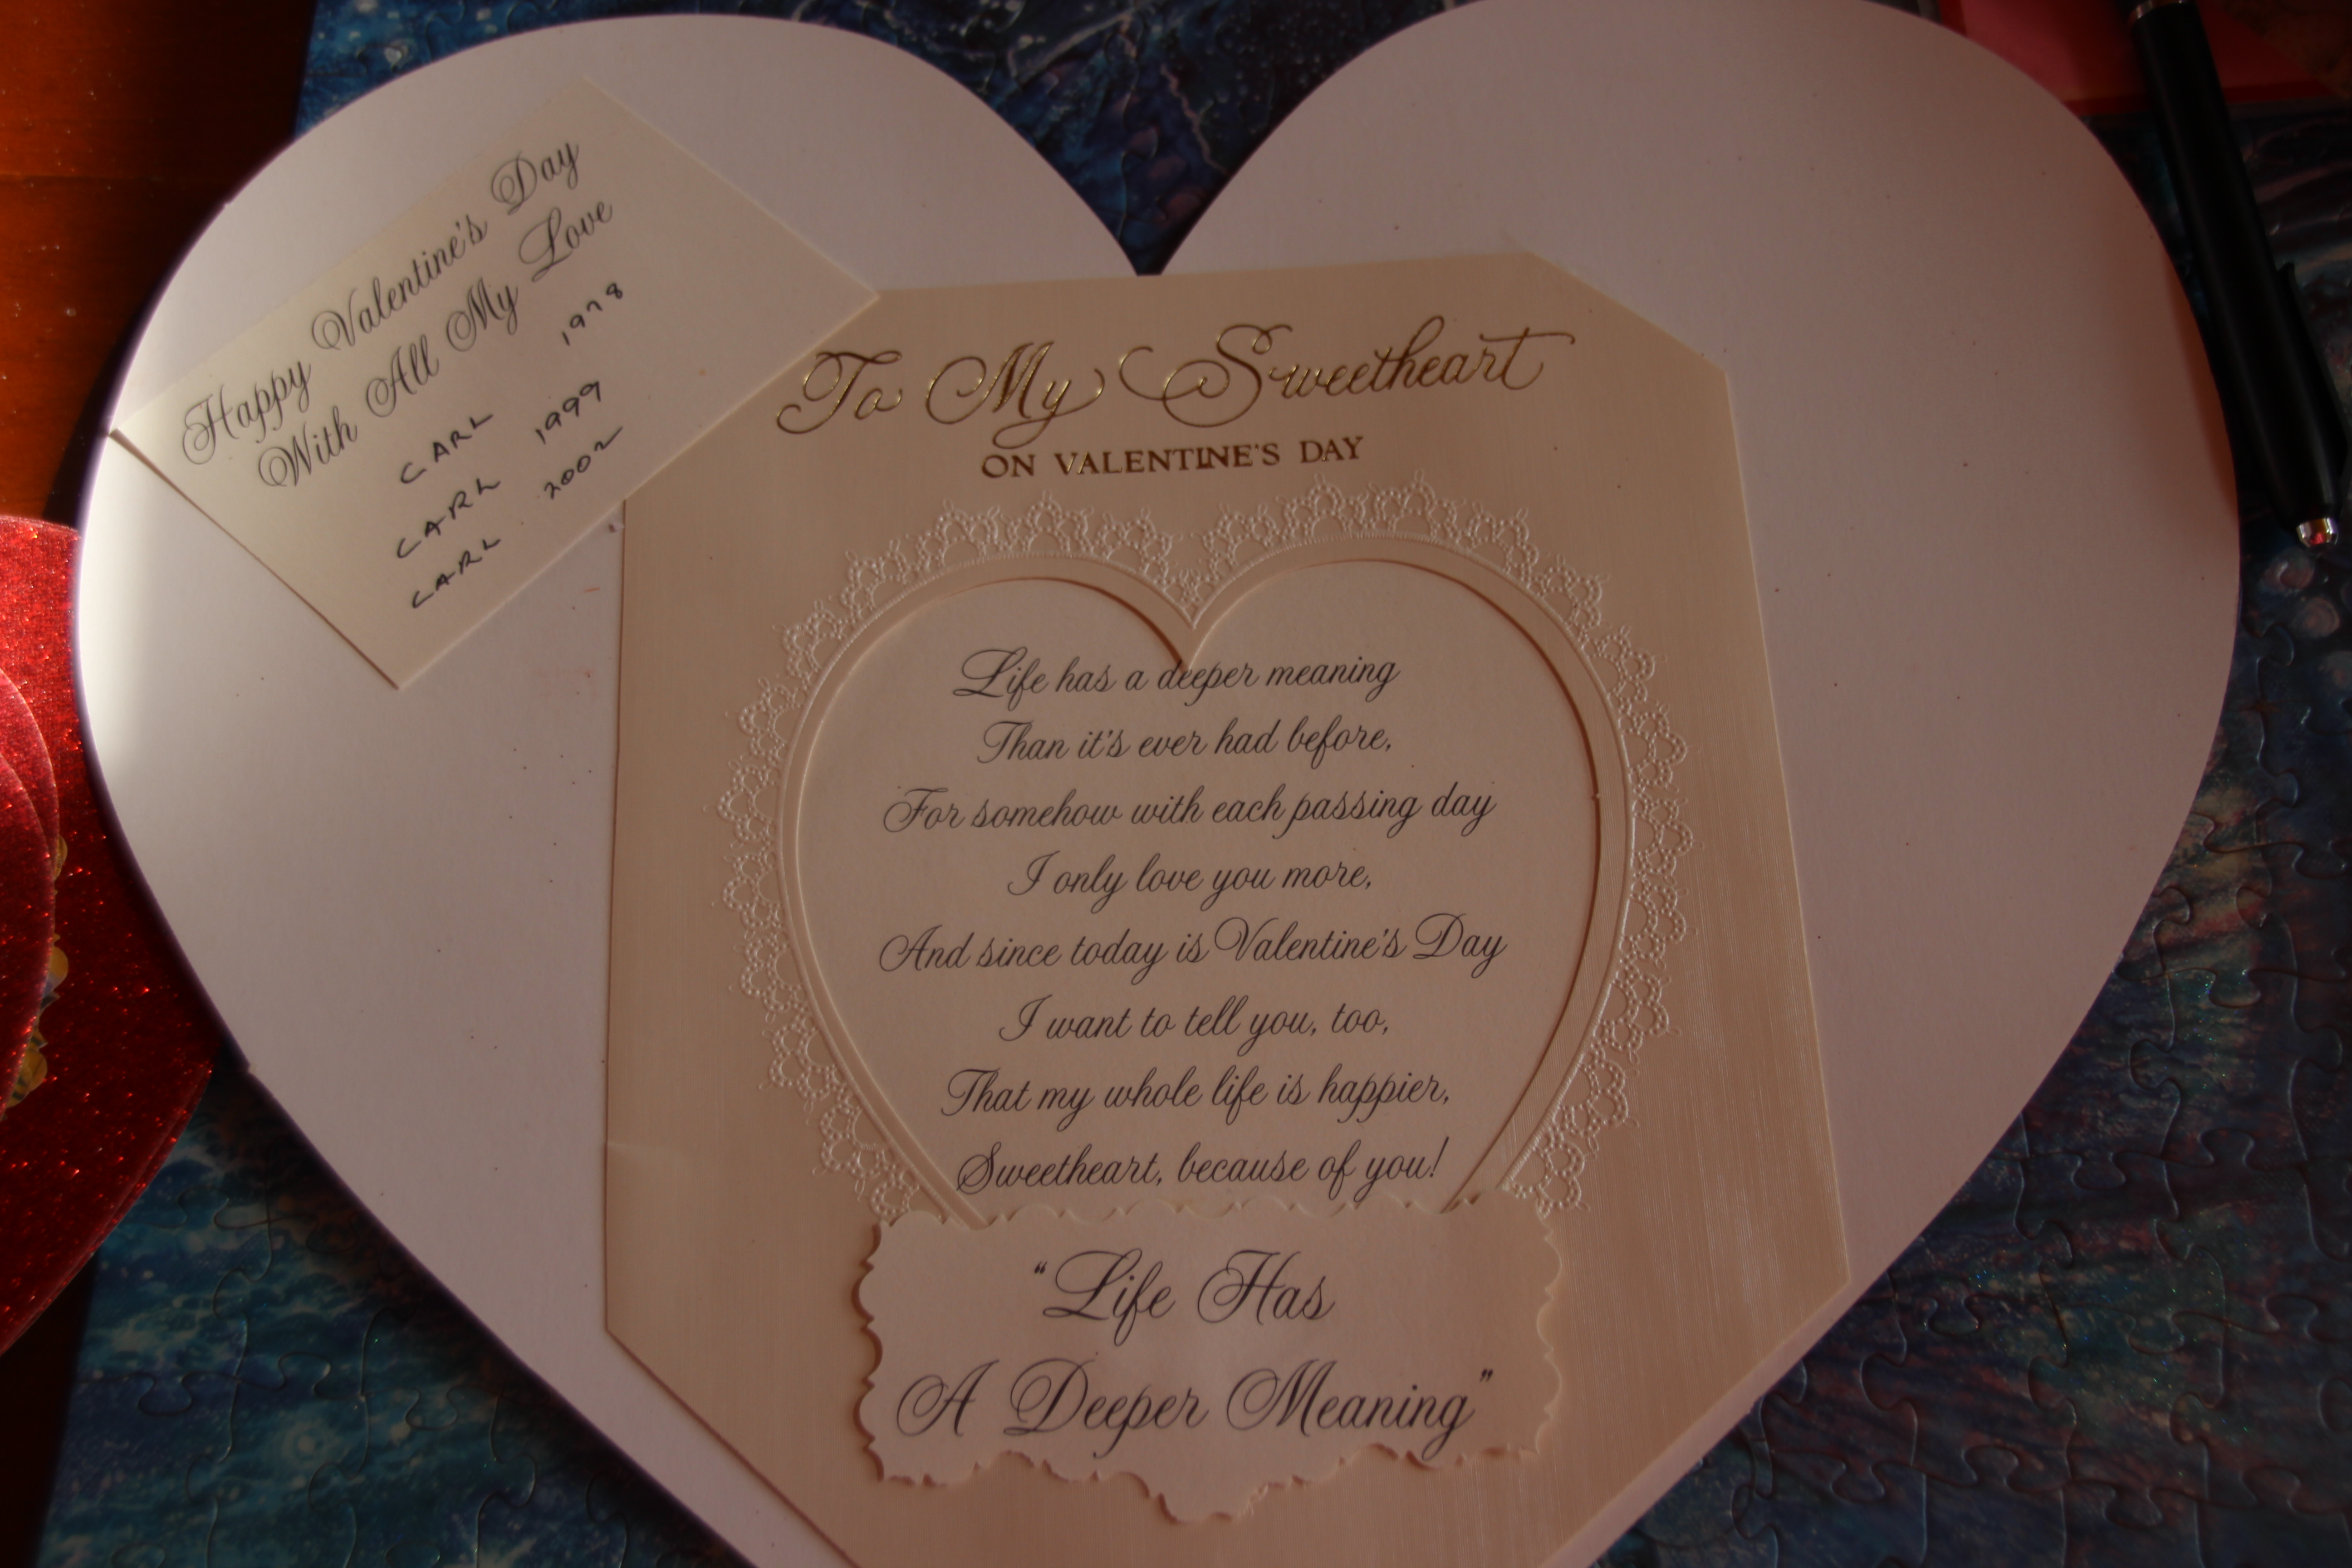 Happy Valentine's Day
With All My Love
CARL 1978
CARL 1999
CARL 2002
To My Sweetheart
ON VALENTINE'S DAY
Life has a deeper meaning
Than it's ever had before,
For somehow with each passing day
I only love you more,
And since today is Valentine's Day
I want to tell you, too,
That my whole life is happier,
Sweetheart, because of you!
"Life Has
A Deeper Meaning"